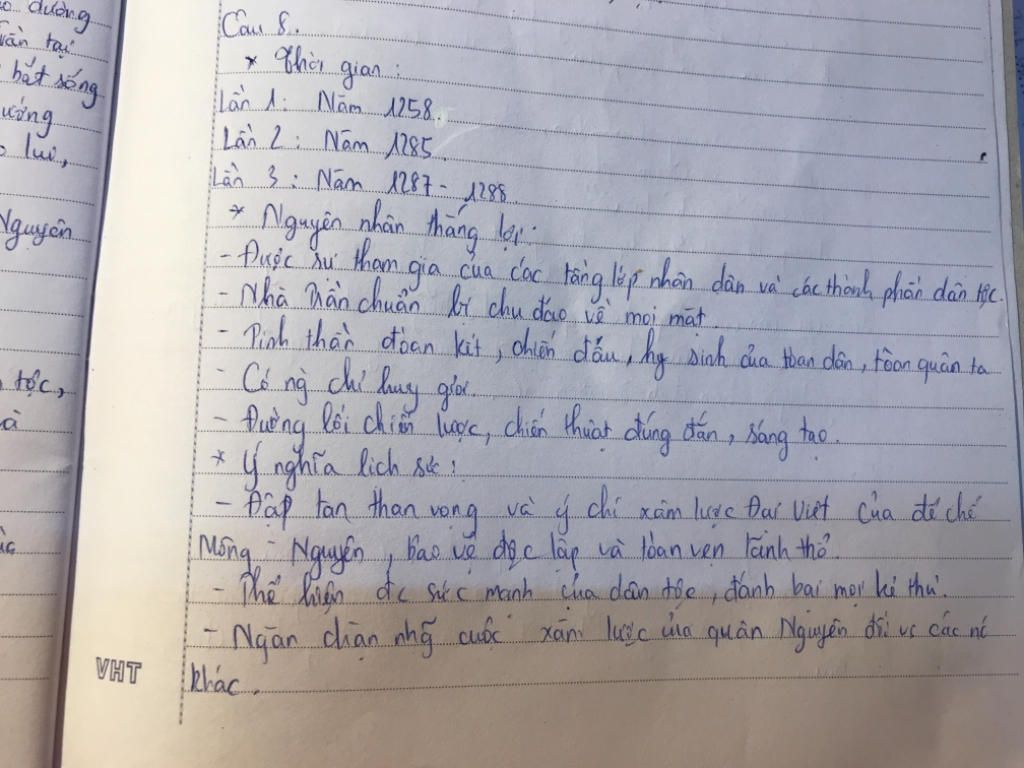 o đường
vãn tại
bắt sống
ướng
o lui,
Nguyên
tộc,
à
Câu 8.
* Thời gian:
Lần 1: Năm 1258.
Lần 2: Năm 1285.
Lần 3: Năm 1287 - 1288
* Nguyên nhân thắng lợi:
- Được sự tham gia của các tầng lớp nhân dân và các thành phần dân tộc.
- Nhà Trần chuẩn bị chu đáo về mọi mặt.
- Tinh thần đoàn kết, chiến đấu, hy sinh của toàn dân, toàn quân ta
- Có ng chỉ huy giỏi.
- Đường lối chiến lược, chiến thuật đúng đắn, sáng tạo.
* Ý nghĩa lịch sử:
- Đập tan tham vọng và ý chí xâm lược Đại Việt của đế chế
Mông - Nguyên, bảo vệ độc lập và toàn vẹn lãnh thổ.
- Thể hiện đc sức mạnh của dân tộc, đánh bại mọi kẻ thù.
- Ngăn chặn nhg cuộc xâm lược của quân Nguyên đối vs các nc
khác.
VHT